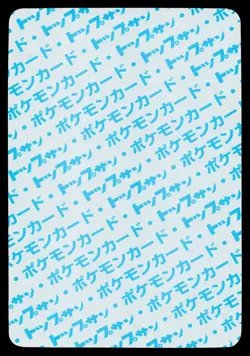 ポケモンカード・
トップサン・ポケモンカード
ポケモンカード・トップサン
トップサン・ポケモンカード・
・ポケモンカード・トップサン
トップサン・ポケモンカード
ポケモンカード・トップサン・
トップサン・ポケモンカード
ポケモンカード・トップサン
トップサン・ポケモンカード・
・ポケモンカード・トップサン
トップサン・ポケモンカード
ポケモンカード・トップサン
トップサン・ポケモンカード